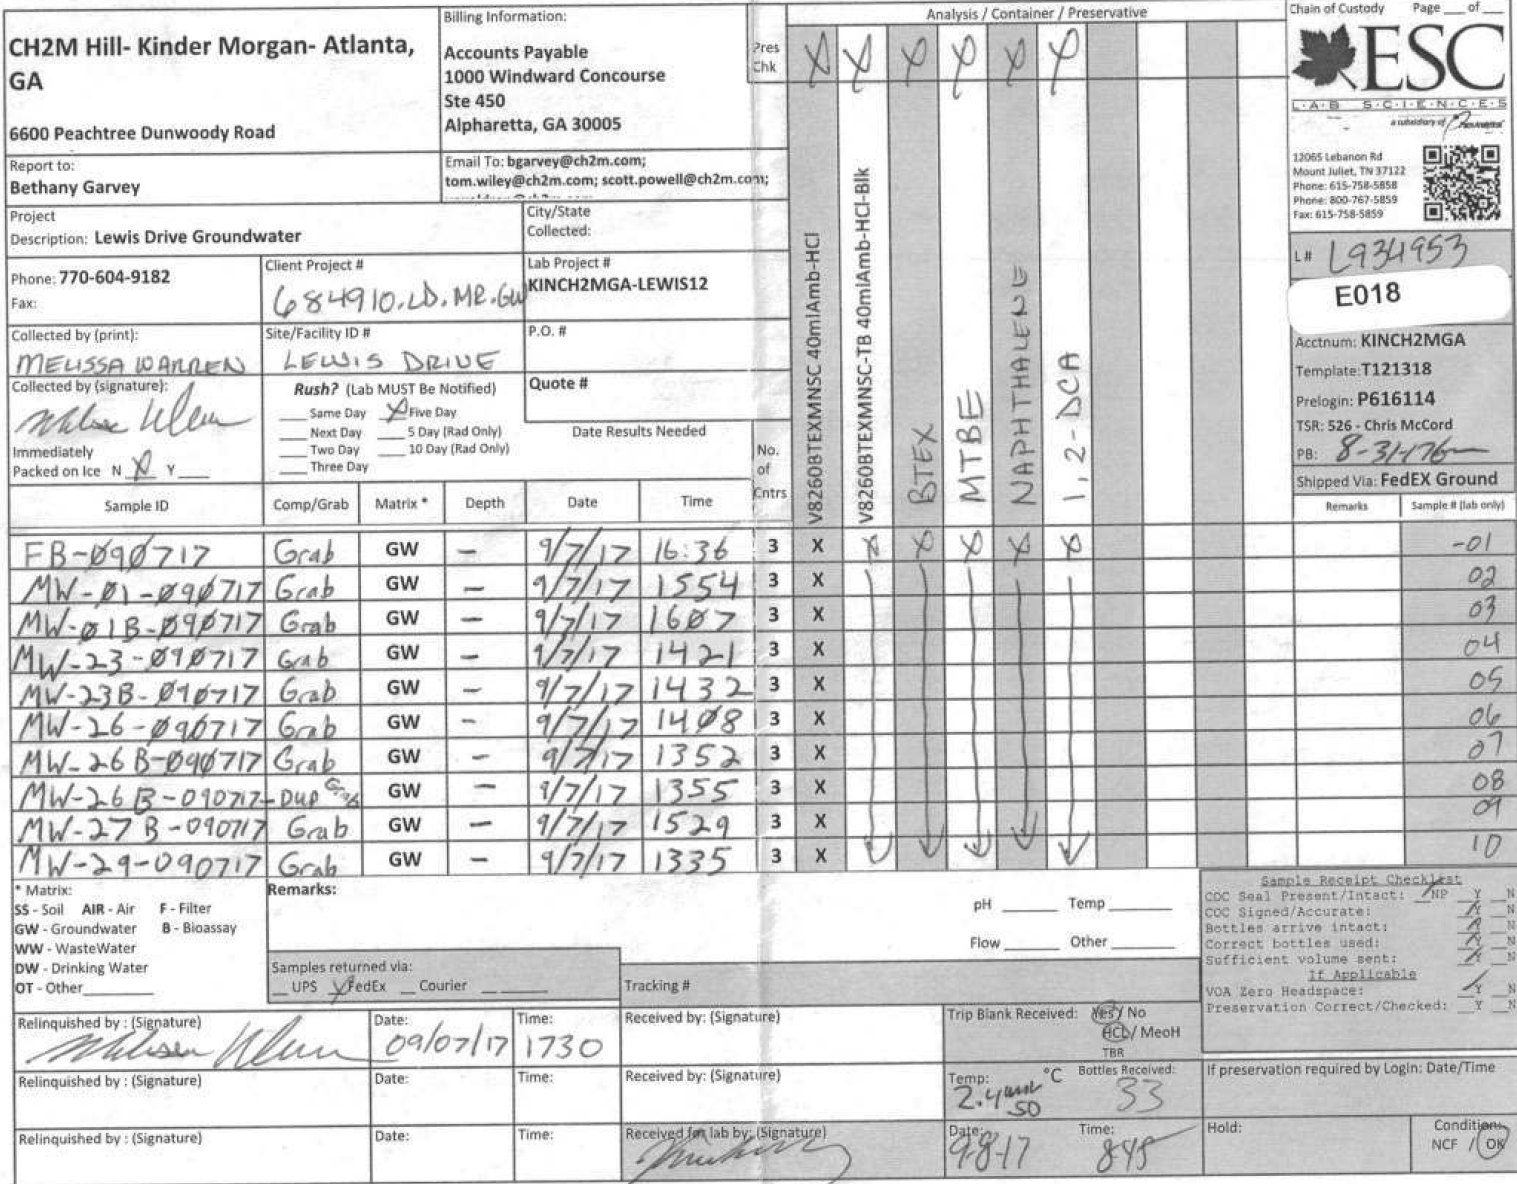 CH2M Hill- Kinder Morgan- Atlanta, GA
6600 Peachtree Dunwoody Road
Billing Information:
Accounts Payable
1000 Windward Concourse
Ste 450
Alpharetta, GA 30005
Pres
Chk
Analysis / Container / Preservative
Chain of Custody Page ___ of ___
ESC
L·A·B S·C·I·E·N·C·E·S
a subsidiary of
12065 Lebanon Rd
Mount Juliet, TN 37122
Phone: 615-758-5858
Phone: 800-767-5859
Fax: 615-758-5859
Report to:
Bethany Garvey
Email To: bgarvey@ch2m.com;
tom.wiley@ch2m.com; scott.powell@ch2m.com;
Project
Description: Lewis Drive Groundwater
City/State
Collected:
Phone: 770-604-9182
Fax:
Client Project #
684910.LD.MR.GW
Lab Project #
KINCH2MGA-LEWIS12
Collected by (print):
MELISSA WARREN
Site/Facility ID #
LEWIS DRIVE
P.O. #
Collected by (signature):
Immediately
Packed on Ice N X Y ___
Rush? (Lab MUST Be Notified)
___ Same Day X Five Day
___ Next Day ___ 5 Day (Rad Only)
___ Two Day ___ 10 Day (Rad Only)
___ Three Day
Quote #
Date Results Needed
No.
of
Cntrs
V8260BTEXMNSC 40mlAmb-HCl
V8260BTEXMNSC-TB 40mlAmb-HCl-Blk
BTEX
MTBE
NAPHTHALENE
1,2-DCA
L# L934953
E018
Acctnum: KINCH2MGA
Template: T121318
Prelogin: P616114
TSR: 526 - Chris McCord
PB: 8-31-17
Shipped Via: FedEX Ground
Sample ID Comp/Grab Matrix * Depth Date Time Remarks Sample # (lab only)
FB-090717 Grab GW — 9/7/17 16:36 3 X X X X X X -01
MW-01-090717 Grab GW — 9/7/17 1554 3 X 02
MW-01B-090717 Grab GW — 9/7/17 1607 3 X 03
MW-23-090717 Grab GW — 9/7/17 1421 3 X 04
MW-23B-090717 Grab GW — 9/7/17 1432 3 X 05
MW-26-090717 Grab GW — 9/7/17 1408 3 X 06
MW-26B-090717 Grab GW — 9/7/17 1352 3 X 07
MW-26B-090717-DUP Grab GW — 9/7/17 1355 3 X 08
MW-27B-090717 Grab GW — 9/7/17 1529 3 X 09
MW-29-090717 Grab GW — 9/7/17 1335 3 X 10
* Matrix:
SS - Soil AIR - Air F - Filter
GW - Groundwater B - Bioassay
WW - WasteWater
DW - Drinking Water
OT - Other
Remarks:
pH ___ Temp ___
Flow ___ Other ___
Samples returned via:
__ UPS X FedEx __ Courier
Tracking #
Sample Receipt Checklist
COC Seal Present/Intact: NP Y N
COC Signed/Accurate: Y N
Bottles arrive intact: Y N
Correct bottles used: Y N
Sufficient volume sent: Y N
If Applicable
VOA Zero Headspace: Y N
Preservation Correct/Checked: Y N
Relinquished by : (Signature)
Date: 09/07/17
Time: 1730
Received by: (Signature)
Trip Blank Received: Yes / No
HCL / MeoH
TBR
Relinquished by : (Signature)
Date:
Time:
Received by: (Signature)
Temp: 2.4 °C
Bottles Received: 33
If preservation required by Login: Date/Time
Relinquished by : (Signature)
Date:
Time:
Received for lab by: (Signature)
Date: 9-8-17
Time: 845
Hold:
Condition:
NCF / OK